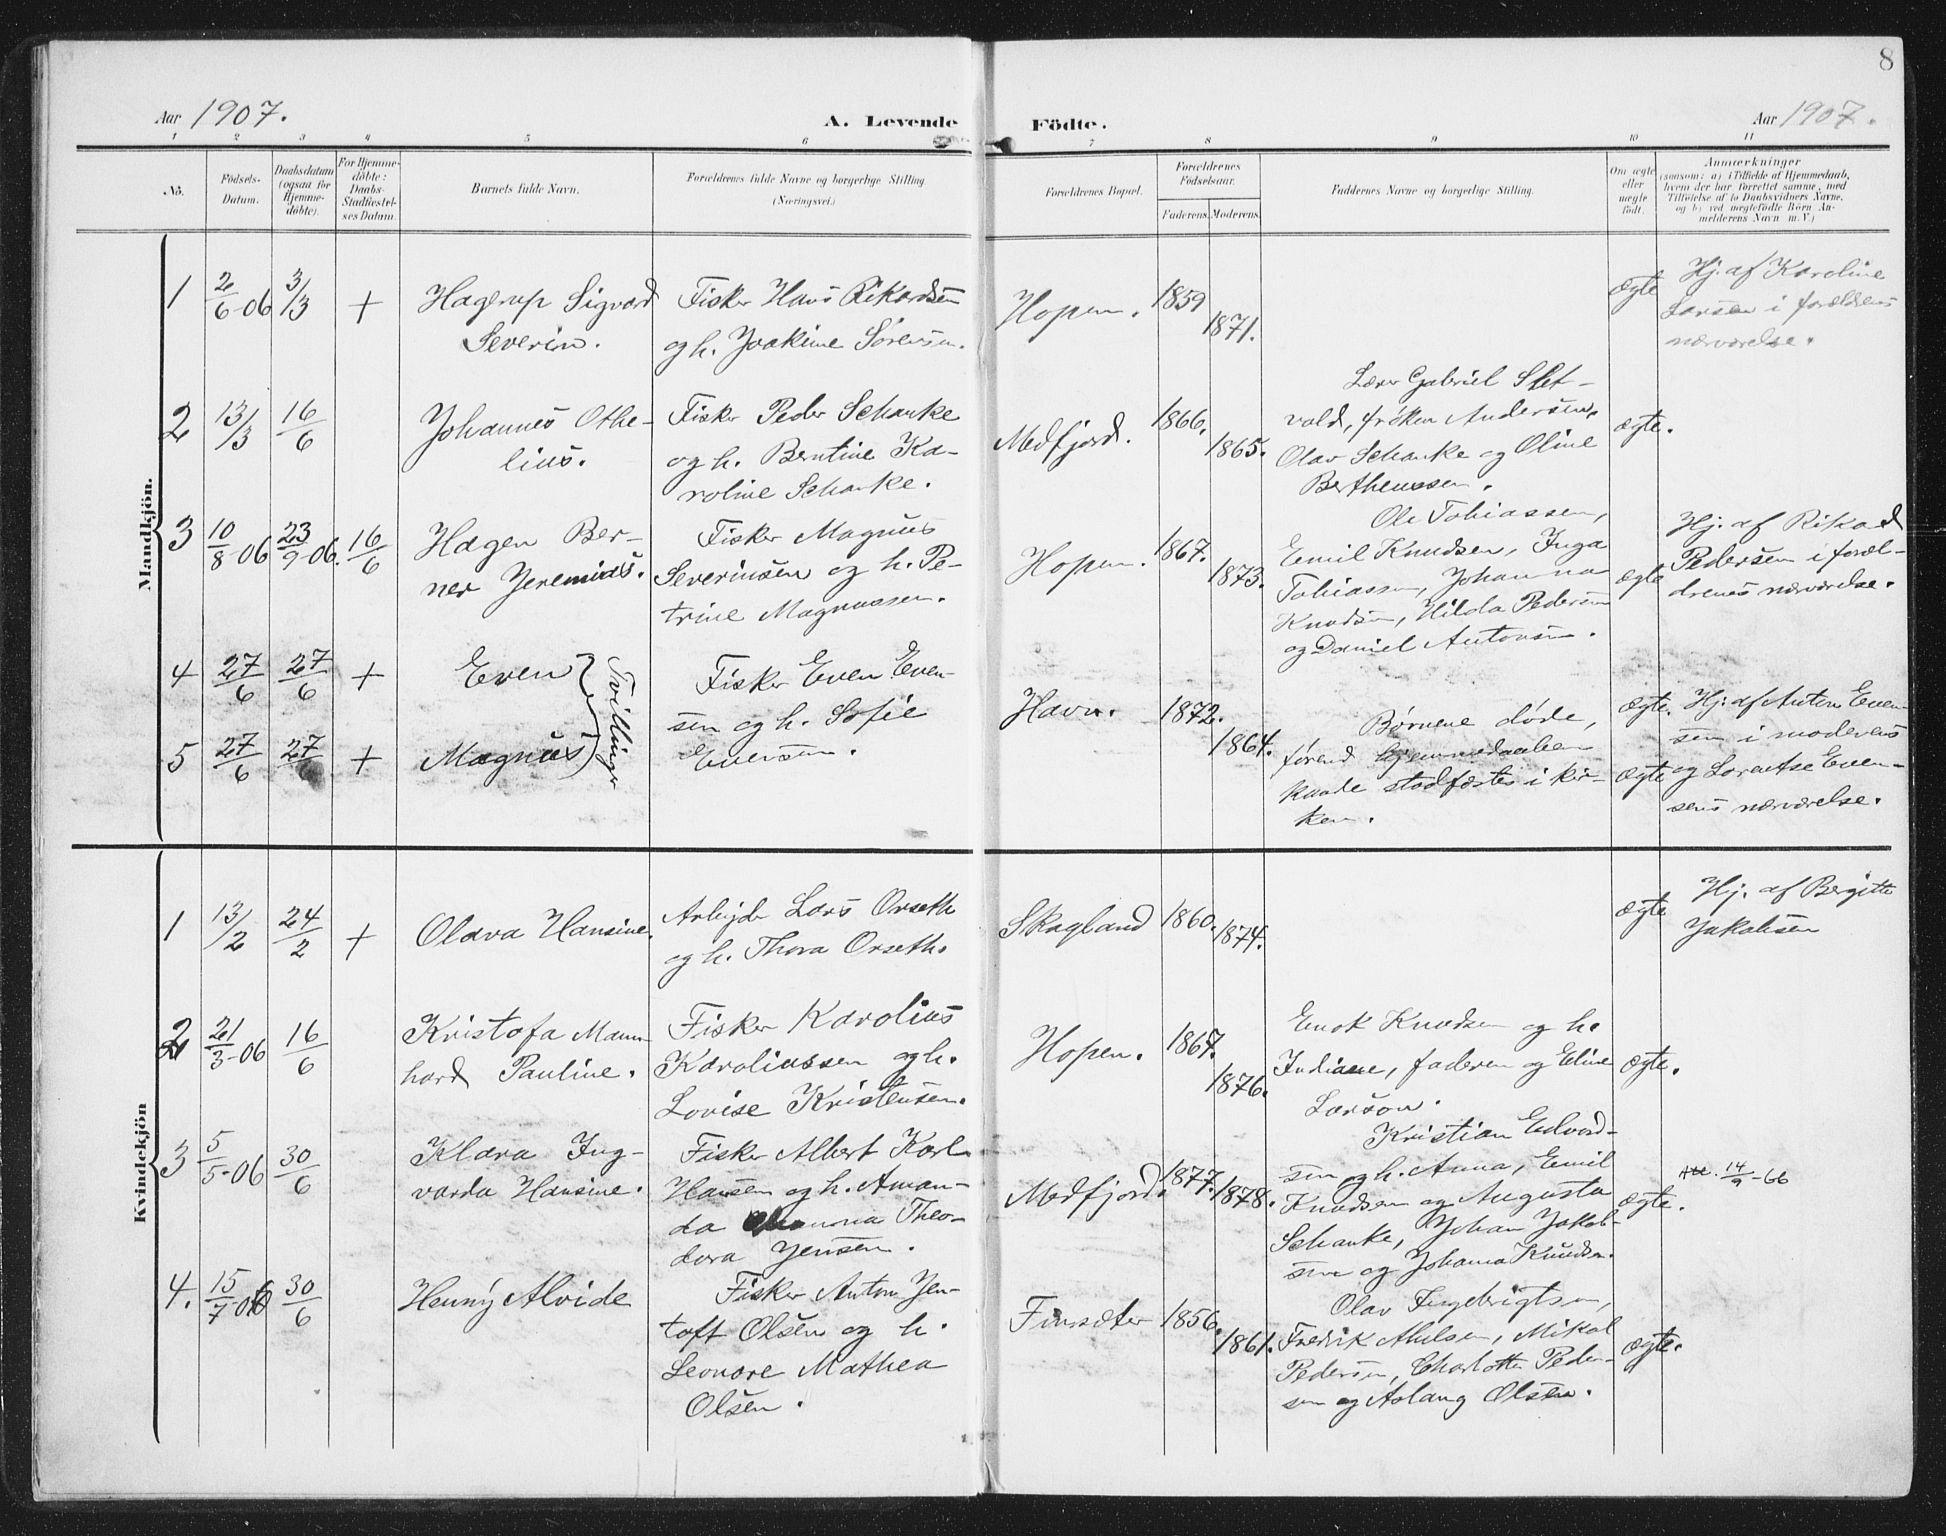 8
Aar 1907.
A. Levende
Födte.
Aar 1907.
1 2 3 4 5 6 7 8 9 10 11
No.
Födsels-
Datum.
Daabsdatum
(ogsaa for
Hjemme-
döbte).
For Hjemme-
döbte:
Daabs-
Stadfæstel-
ses Datum.
Barnets fulde Navn.
Forældrenes fulde Navne og borgerlige Stilling.
(Næringsvei.)
Forældrenes Bopæl.
Forældrenes
Födselsaar.
Faderens. Moderens.
Faddernes Navne og borgerlige Stilling.
Om ægte
eller
uægte
födt.
Anmærkninger
(saasom: a) i Tilfælde af Hjemmedaab,
hvem der har forrettet samme, med
Tilföielse af to Daabsvidners Navne,
og b) ved uægtefödte Börn An-
melderens Navn m. V.)
Mandkjön.
1 2/6-06 3/3 +
Hagerup Sigvard
Severin.
Fisker Hans Rikardsen
og h. Joakime Sörensen.
Hopen. 1859 1871.
ægte
Hj. af Karoline
Larsen i forældrenes
nærværelse.
2 13/3 16/6
Johannes Othe-
lius.
Fisker Peder Schanke
og h. Berntine Ka-
roline Schanke.
Medfjord. 1866. 1865.
Lærer Gabriel Slet-
vold, fröken Andersen,
Olav Schanke og Oline
Bertheussen.
ægte.
3 10/8-06 23/9-06. 16/6
Hagen Ber-
ner Jeremias.
Fisker Magnus
Severinsen og h. Pe-
trine Magnussen.
Hopen. 1867. 1873.
Ole Tobiassen,
Emil Knudsen, Inga
Tobiassen, Johanna
Knudsen, Hilda Pedersen
og Daniel Antonsen.
ægte
Hj. af Rikard
Pedersen i foræl-
drenes nærværelse.
4 27/6 27/6 +
Even
Tvillinger
5 27/6 27/6 +
Magnus
Fisker Even Even-
sen og h. Sofie
Evensen.
Havn. 1872. 1864.
Børnene døde,
førend hjemmedaaben
kunde stadfæstes i kir-
ken.
ægte.
ægte
Hj. af Anton Even-
sen i moderens
og Lorentse Even-
sens nærværelse.
Kvindekjön
1 13/2 24/2 +
Olava Hansine.
Arbejdr Lars Orseth
og h. Thora Orseth.
Skogland 1860. 1874.
ægte
Hj. af Bergitte
Jakobsen
2 21/3-06 16/6
Kristofa Mann-
hard Pauline.
Fisker Karolius
Karoliussen og h.
Lovise Kristensen.
Hopen. 1867. 1876.
Enok Knudsen og h.
Indiane, faderen og Eline
Larson.
ægte.
3 5/5-06 30/6
Klara Ing-
varda Hansine.
Fisker Albert Karl
Hansen og h. Aman-
da Theo-
dora Jensen.
Medfjord. 1877. 1878.
Kristian Edvard-
sen og h. Anna, Emil
Knudsen og Augusta
Schanke, Johan Jakob-
sen og Johanna Knudsen.
ægte.
14/9-66
4. 15/7-06 30/6
Henny Alvide
Fisker Anton Jen-
toft Olsen og h.
Leonore Mathea
Olsen.
Finsæter 1856. 1861.
Olav Ingebrigtsen,
Fredrik Abelsen, Mikal
Pedersen, Charlotte Peder-
sen og Aslaug Olsen.
ægte.